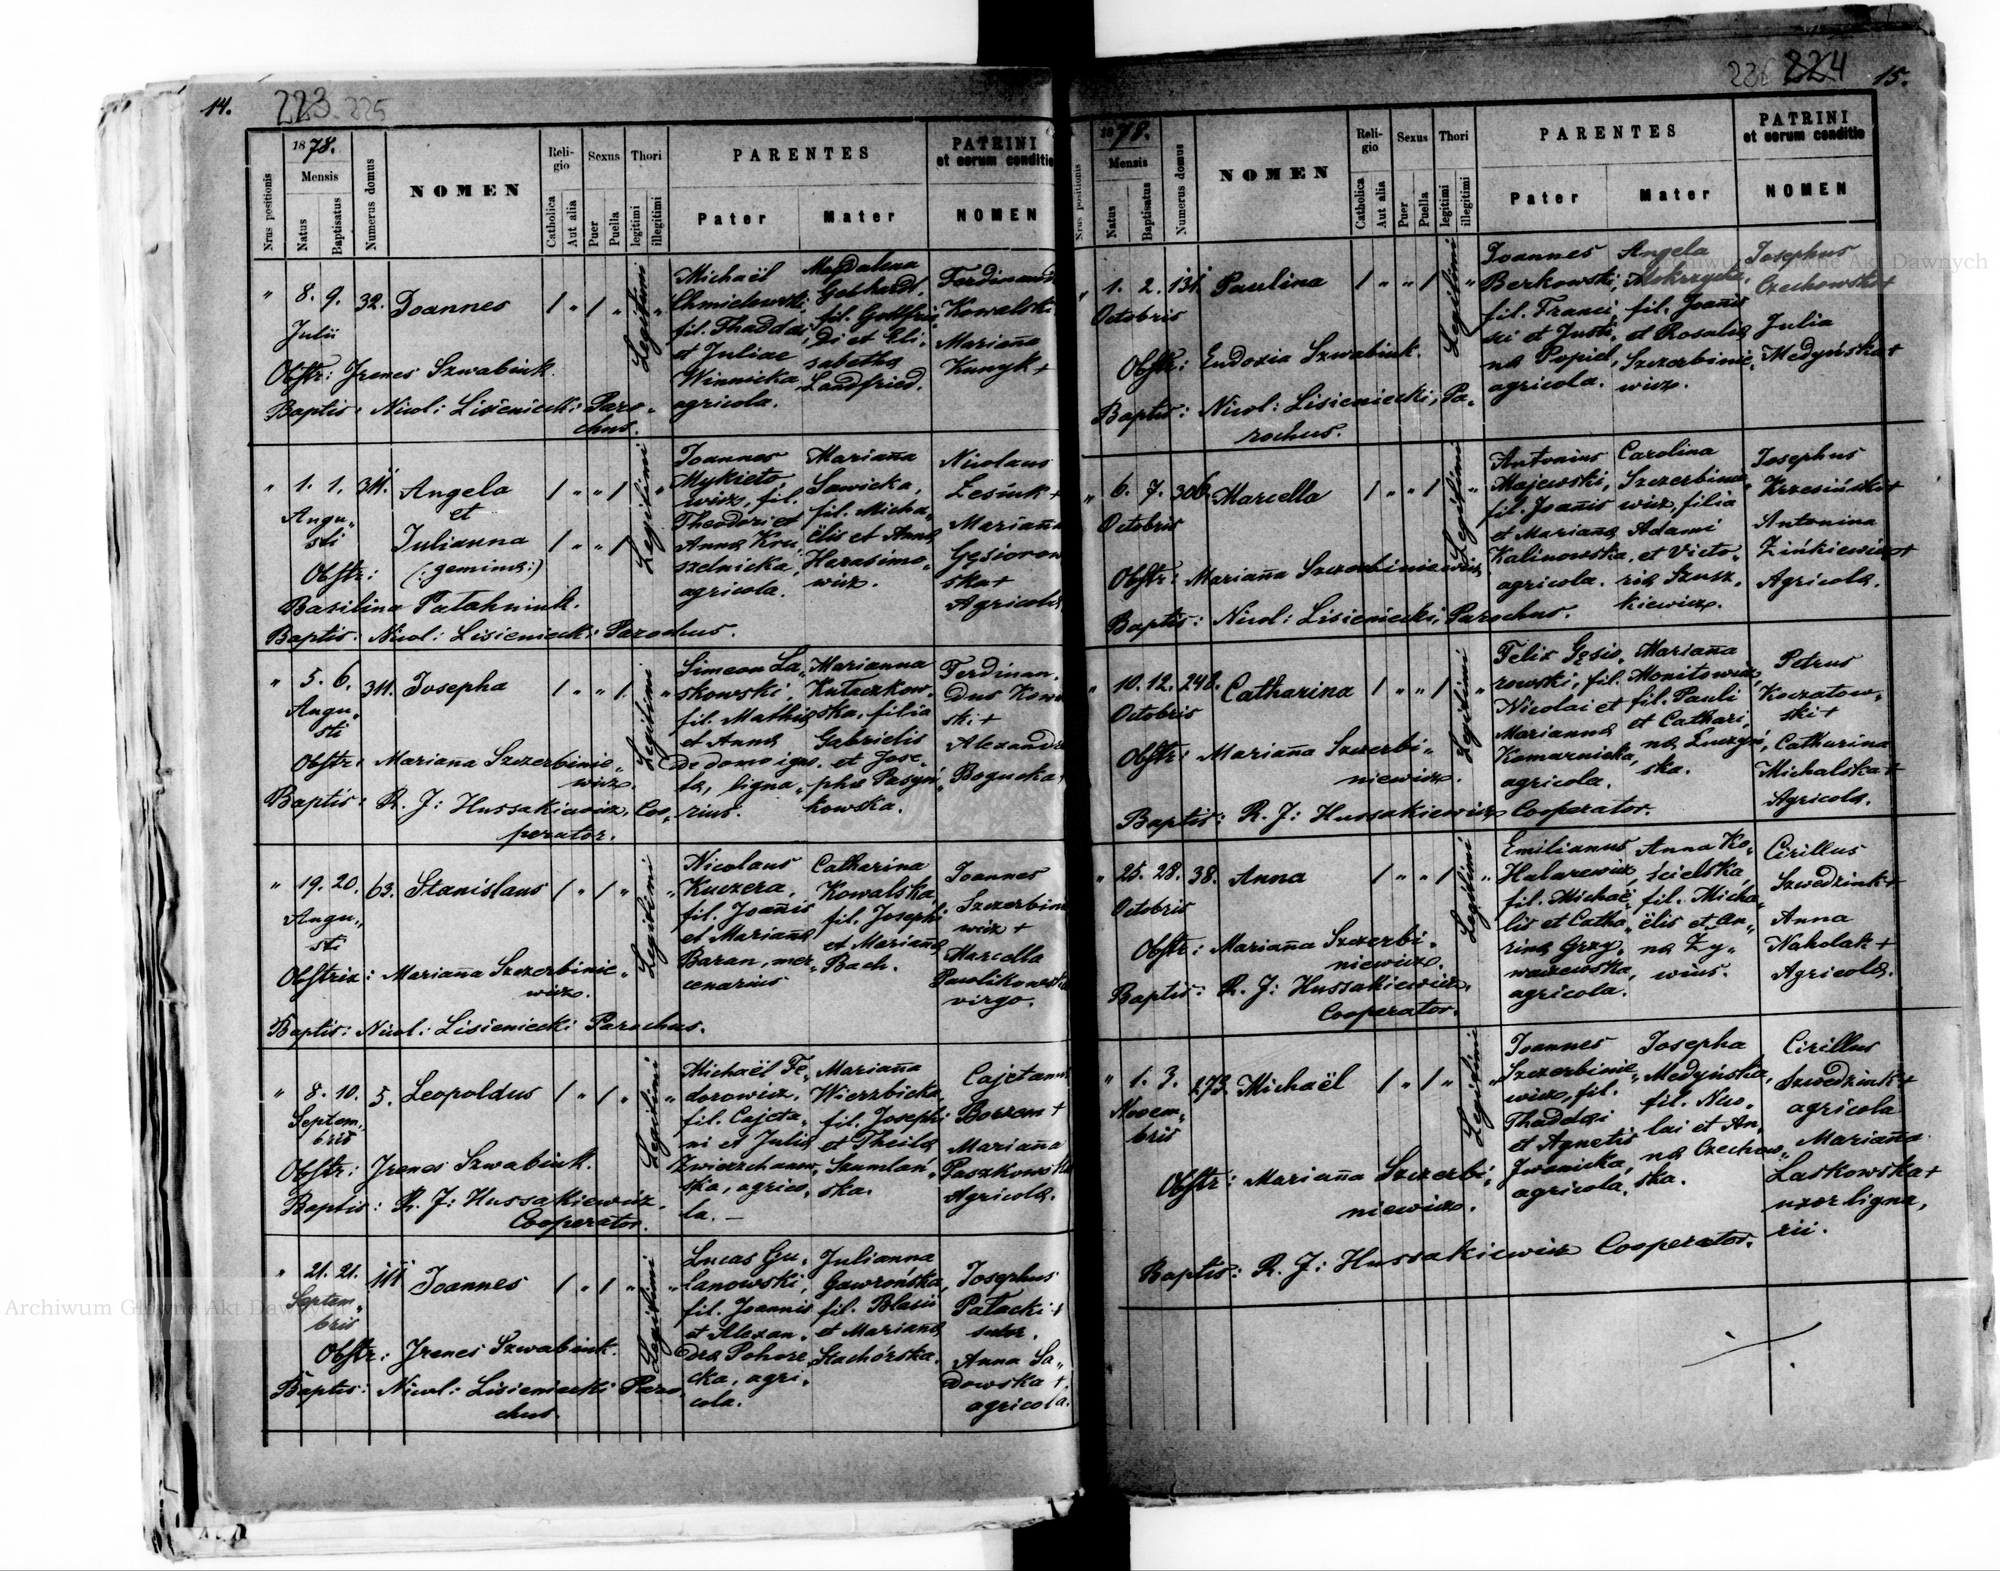 14.
223 225
1878.
Nrus positionis
Mensis
Natus
Baptisatus
Numerus domus
NOMEN
Religio
Catholica
Aut alia
Sexus
Puer
Puella
Thori
legitimi
illegitimi
PARENTES
Pater
Mater
PATRINI
et eorum conditio
NOMEN
" 8. 9. 32. Joannes / " / " Legitimi "
Julii
Obstr: Irenes Szwabiuk.
Baptis: Nicol: Lisieniecki Paro„
chus.
Michaël
Chmielowski,
fil. Thaddaei
et Juliae
Winnicka,
agricola.
Magdalena
Gebhardt,
fil. Gottfrie„
di et Eli„
sabetha
Landfried.
Ferdinand
Kowalski
Mariana
Kunyk +
" 1. 1. 311. Angela / " " / Legitimi "
Augu„
sti
et
Julianna / " " /
(: gemina :)
Obstr:
Basilina Patahniuk.
Baptis: Nicol: Lisieniecki Parochus.
Joannes
Mykieto„
wicz, fil.
Theodori et
Anna Kru„
szelnicka,
agricola.
Mariana
Sawicka,
fil. Micha„
ëlis et Anna
Harasimo„
wicz.
Nicolaus
Lesiuk +
Mariana
Gęsiorow
ska +
Agricola
" 5. 6. 311. Josepha / " " / Legitimi "
Augu„
sti
Obstr: Mariana Szczerbinie„
wicz.
Baptis: R. J: Hussakiewicz, Coo„
perator.
Simeon La„
skowski,
fil. Mathia
et Anna
De domo igno„
ta, ligna„
rius.
Marianna
Kutaczkow„
ska, filia
Gabrielis
et Jose„
pha Pasyń„
kowska.
Ferdinan„
dus Kow
ski +
Alexandra
Bogucka +
" 19. 20. 63. Stanislaus / " / " Legitimi "
Augu„
sti
Obstrix: Mariana Szczerbinie„
wicz.
Baptis: Nicol: Lisieniecki Parochus.
Nicolaus
Kuczera,
fil. Joanis
et Mariana
Baran, mer„
cenarius
Catharina
Kowalska,
fil. Josephi
et Mariana
Bach.
Joannes
Szczerbin
wicz +
Marcella
Pawlikowska
virgo.
" 8. 10. 5. Leopoldus / " / " Legitimi "
Septem„
bris
Obstr: Irenes Szwabiuk.
Baptis: R. J: Hussakiewicz.
Cooperator.
Michaël Fe„
dorowicz,
fil. Cajeta„
ni et Julia
Zwierzchanow„
ska, agrico„
la. —
Mariana
Wierzbicka,
fil. Josephi
et Theila
Szumlań„
ska.
Cajetanus
Borzem +
Mariana
Paszkowska
Agricola.
" 21. 21. 111 Joannes / " / " Legitimi "
Septem„
bris
Obstr: Irenes Szwabiuk.
Baptis: Nicol: Lisieniecki Paro„
chus.
Lucas Gu„
lanowski,
fil. Joannis
et Alexan„
dra Pohore„
cka, agri„
cola.
Julianna
Gawrońska,
fil. Blasii
et Mariana
Stachórska.
Josephus
Patacki +
sutor.
Anna Sa„
dowska +
agricola.
224 15.
1878.
Nrus positionis
Mensis
Natus
Baptisatus
Numerus domus
NOMEN
Religio
Catholica
Aut alia
Sexus
Puer
Puella
Thori
legitimi
illegitimi
PARENTES
Pater
Mater
PATRINI
et eorum conditio
NOMEN
" 1. 2. 131. Paulina / " " / Legitimi "
Octobris
Obstr: Eudoxia Szwabiuk.
Baptis: Nicol: Lisieniecki, Pa„
rochus.
Joannes
Berkowski,
fil. Franci„
sci et Justi„
na Popiel,
agricola.
Angela
Mokrzycka,
fil. Joanis
et Rosalia
Szczerbinie„
wicz.
Josephus
Czechowski +
Julia
Medyńska +
" 6. 7. 306. Marcella / " " / Legitimi "
Octobris
Obstr: Mariana Szczerbiniewicz
Baptis: Nicol: Lisieniecki, Parochus.
Antonius
Majewski,
fil. Joanis
et Mariana
Kalinowska,
agricola.
Carolina
Szczerbinie„
wicz, filia
Adami
et Victo„
ria Szusz„
kiewicz.
Josephus
Krzesiński +
Antonina
Zińkiewicz +
Agricola.
" 10. 12. 248. Catharina / " " / Legitimi "
Octobris
Obstr: Mariana Szczerbi„
niewicz.
Baptis: R. J: Hussakiewicz Cooperator.
Felix Gęsio„
rowski, fil.
Nicolai et
Marianna
Komarnicka,
agricola.
Mariana
Monitowicz,
fil. Pauli
et Cathari„
na Łuczyń„
ska.
Petrus
Koczatow„
ski +
Catharina
Michalska +
Agricola.
" 25. 28. 38. Anna / " " / Legitimi "
Octobris
Obstr: Mariana Szczerbi„
niewicz.
Baptis: R. J: Hussakiewicz,
Cooperator.
Emilianus
Halarewicz,
fil. Michaë„
lis et Catha„
rina Grzy„
waczewska,
agricola.
Anna Ko„
ścielska,
fil. Micha„
ëlis et An„
na Zy„
wius.
Cirillus
Szwedziuk +
Anna
Naholak +
Agricola.
" 1. 3. 273. Michaël / " / " Legitimi "
Novem„
bris
Obstr: Mariana Szczerbi„
niewicz.
Baptis: R. J: Hussakiewicz Cooperator.
Joannes
Szczerbinie„
wicz, fil.
Thaddaei
et Agnetis
Iwanicka,
agricola.
Josepha
Medyńska,
fil. Nico„
lai et An„
na Czechow„
ska.
Cirillus
Szwedziuk +
agricola
Mariana
Laskowska +
uxor ligna„
rii.
Archiwum Główne Akt Dawnych
Archiwum Główne Akt Dawnych